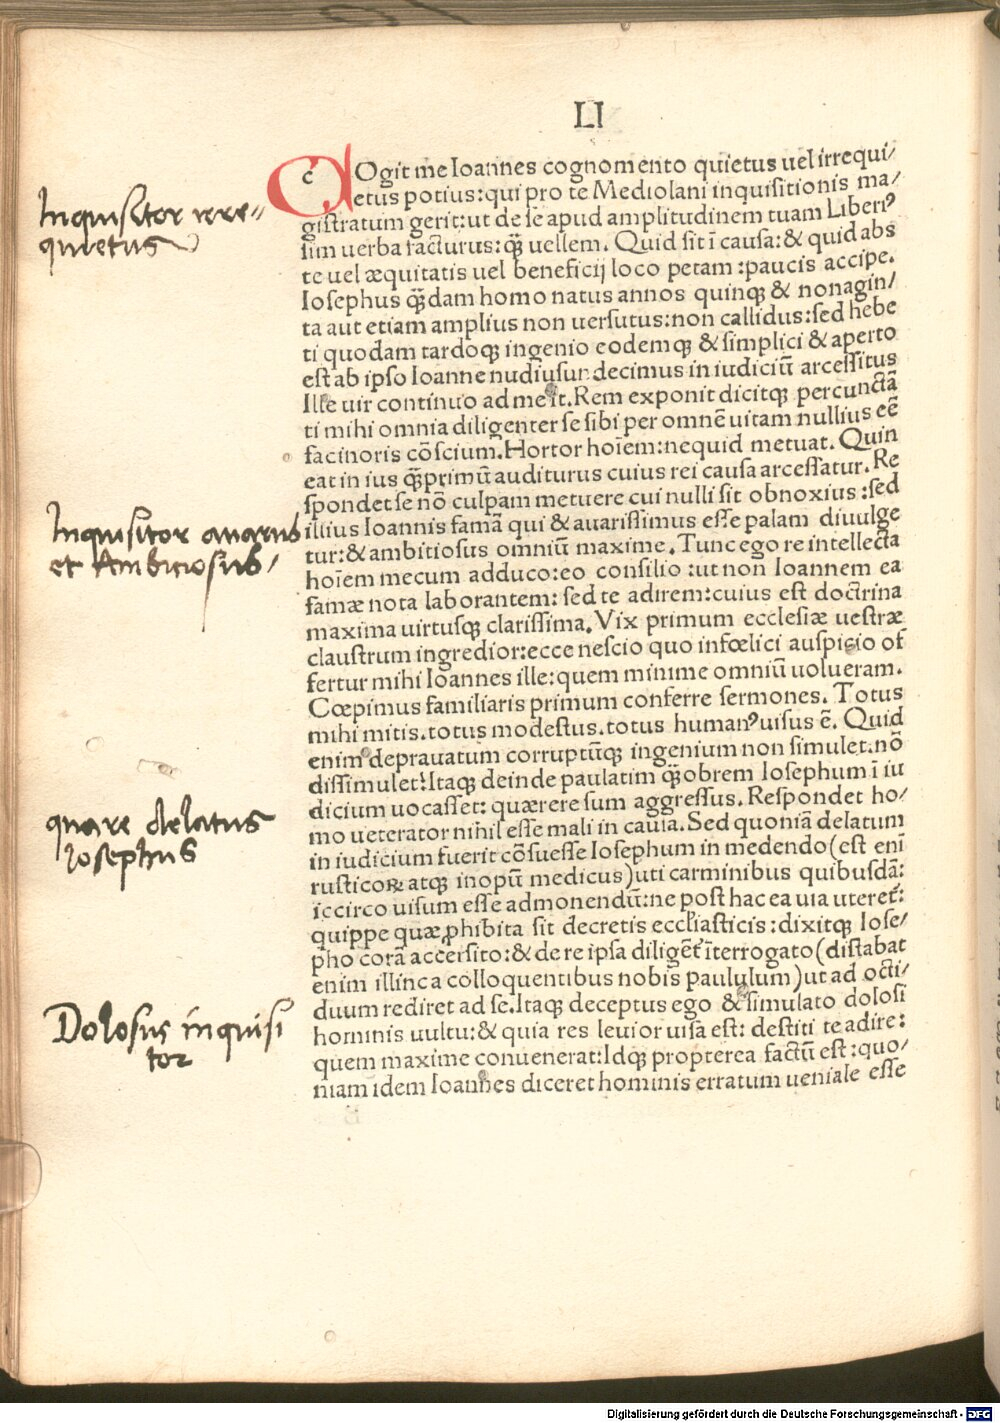 LI
COgit me Ioannes cognomento quietus uel irrequi/
etus potius:qui pro te Mediolani inquisitionis ma/
gistratum gerit:ut de se apud amplitudinem tuam Liberiꝰ
sim uerba facturus:q̃ꝫ uellem. Quid sit ĩ causa:& quid abs
te uel æquitatis uel beneficij loco petam:paucis accipe.
Iosephus q̃dam homo natus annos quinqꝫ & nonagin/
ta aut etiam amplius non uersutus:non callidus:sed hebe
ti quodam tardoqꝫ ingenio eodemqꝫ & simplici & aperto
est ab ipso Ioanne nudiusur decimus in iudiciũ arcessitus
Ille uir continuo ad me it. Rem exponit dicitqꝫ percunctã
ti mihi omnia diligenter se sibi per omnẽ uitam nullius eẽ
facinoris cõscium. Hortor hoĩem:nequid metuat. Quin
eat in ius q̃ꝫprimũ auditurus cuius rei causa arcessatur. Re
spondet se nõ culpam metuere cui nulli sit obnoxius:sed
illius Ioannis famã qui & auarissimus esse palam diuulge
tur:& ambitiosus omniũ maxime. Tunc ego re intellecta
hoĩem mecum adduco:eo consilio:ut non Ioannem ea
famæ nota laborantem:sed te adirem:cuius est doctrina
maxima uirtusqꝫ clarissima. Vix primum ecclesiæ uestræ
claustrum ingredior:ecce nescio quo infœlici auspicio of
fertur mihi Ioannes ille:quem minime omniũ uolueram.
Cœpimus familiaris primum conferre sermones. Totus
mihi mitis.totus modestus.totus humanꝰ uisus ẽ. Quid
enim deprauatum corruptũqꝫ ingenium non simulet.nõ
dissimulet? Itaqꝫ deinde paulatim q̃ꝫobrem Iosephum ĩ iu
dicium uocasset: quærere sum aggressus. Respondet ho/
mo ueterator nihil esse mali in causa. Sed quoniã delatum
in iudicium fuerit cõsuesse Iosephum in medendo(est enĩ
rusticoꝝ atqꝫ inopũ medicus)uti carminibus quibusdã:
iccirco uisum esse admonendũ:ne post hac ea uia utereť:
quippe quæ ꝓhibita sit decretis eccľiasticis:dixitqꝫ Iose/
pho corã accersito:& de re ipsa diligẽť ĩterrogato(distabat
enim illinc a colloquentibus nobis paululum)ut ad octi/
duum rediret ad se. Itaqꝫ deceptus ego & simulato dolosi
hominis uultu:& quia res leuior uisa est: destiti te adire:
quem maxime conuenerat:Idqꝫ propterea factũ est:quo/
niam idem Ioannes diceret hominis erratum ueniale esse
Inquisitor irre//
quietus
Inquisitor auarus
et Ambiciosus/
quare delatus
Iosephus
Dolosus inquisi
tor
Digitalisierung gefördert durch die Deutsche Forschungsgemeinschaft - DFG